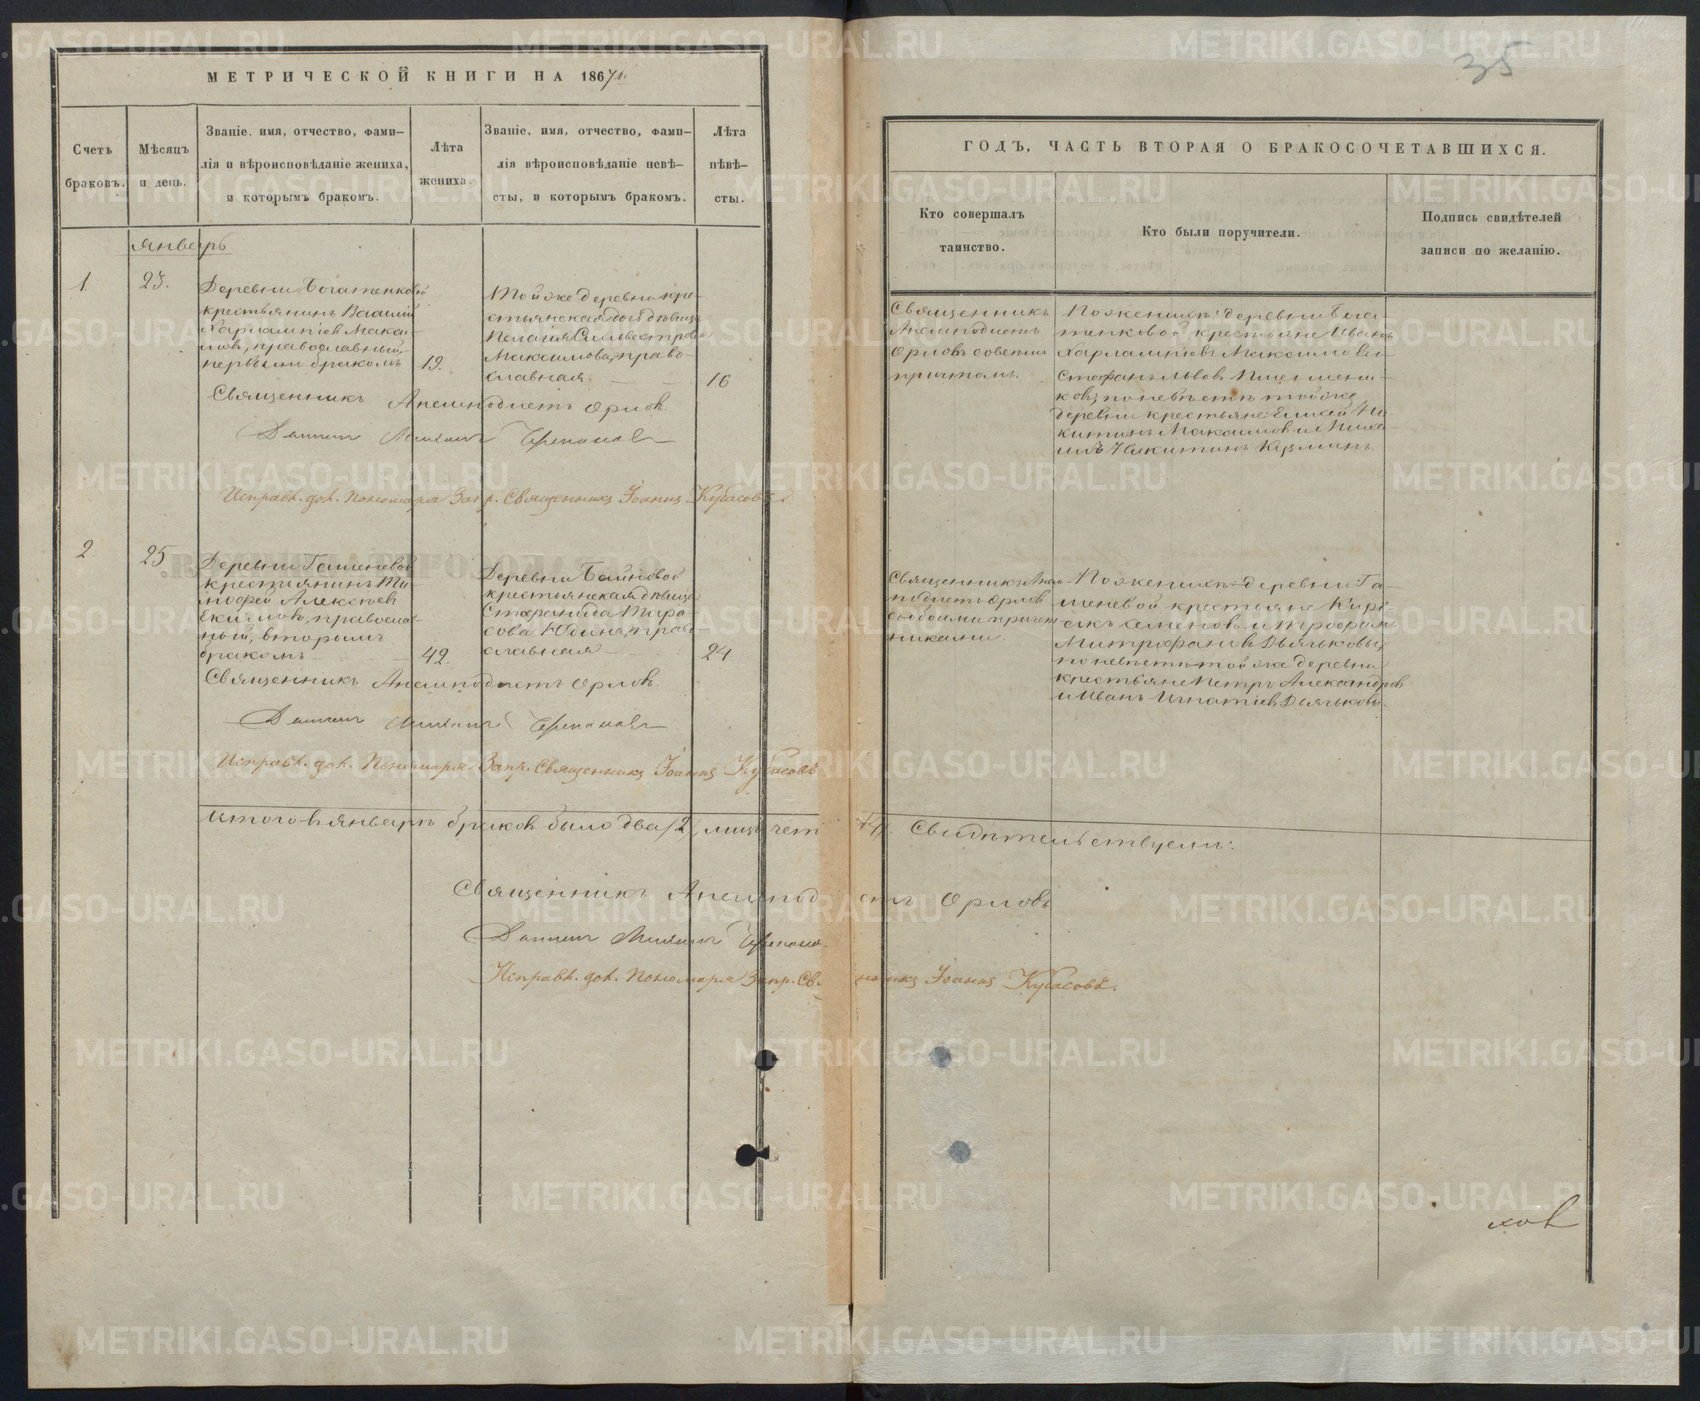 МЕТРИЧЕСКОЙ КНИГИ НА 1867й
Счетъ браковъ.
Мѣсяцъ и день.
Званіе, имя, отчество, фами-
лія и вѣроисповѣданіе жениха,
и которымъ бракомъ.
Лѣта
жениха.
Званіе, имя, отчество, фами-
лія вѣроисповѣданіе невѣ-
сты, и которымъ бракомъ.
Лѣта
невѣ-
сты.
Январь
1.
23.
Деревни Богатенковой
крестьянинъ Василій
Харлампіевъ Макси-
мовъ, православный,
первымъ бракомъ
19.
Той же деревни кре-
стьянская дочь дѣвица
Пелагія Сильвестрова
Максимова, право-
славная.
16
Священникъ Анемподистъ Орловъ
Дьячекъ Михаилъ
Исправл. дол. Пономаря Запр. Священникъ Іоаннъ Кубасовъ.
2.
25
Деревни Гашеневой
крестьянинъ Ти-
мофей Алексѣевъ
православ-
ный, вторымъ
бракомъ
42.
Деревни Байновой
крестьянская дѣвица
Степанида Тара-
сова Юдина, право-
славная
24.
Священникъ Анемподистъ Орловъ.
Дьячекъ Михаилъ
Исправл. дол. Пономаря Запр. Священникъ Іоаннъ Кубасовъ
Итого въ Январѣ браковъ было два /2/, лицъ чет /4/. Свидѣтельствуемъ:
Священникъ Анемподистъ Орловъ
Дьячекъ Михаилъ
Исправл. дол. Пономаря Запр. Священникъ Іоаннъ Кубасовъ.
35
ГОДЪ, ЧАСТЬ ВТОРАЯ О БРАКОСОЧЕТАВШИХСЯ.
Кто совершалъ
таинство.
Кто были поручители.
Подпись свидѣтелей
записи по желанію.
Священникъ
Анемподистъ
Орловъ со всѣмъ
причтомъ.
По женихѣ: деревни Бога-
тенковой крестьяне Иванъ
Харлампіевъ Максимовъ и
Стефанъ Львовъ Пшенични-
ковъ; по невѣстѣ той же
деревни крестьяне: Елисей Ни-
китинъ Максимовъ и Миха-
илъ Никитинъ Кузминъ
Священникъ Анем-
подистъ Орловъ
съ обоими причет-
никами.
По женихѣ: деревни Га-
шеневой крестьяне Кирі-
акъ Семеновъ и Трофимъ
Митрофановъ Дьячковы;
по невѣстѣ той же деревни
крестьяне Петръ Александровъ
и Иванъ Игнатіевъ Дьячковы.
METRIKI.GASO-URAL.RU